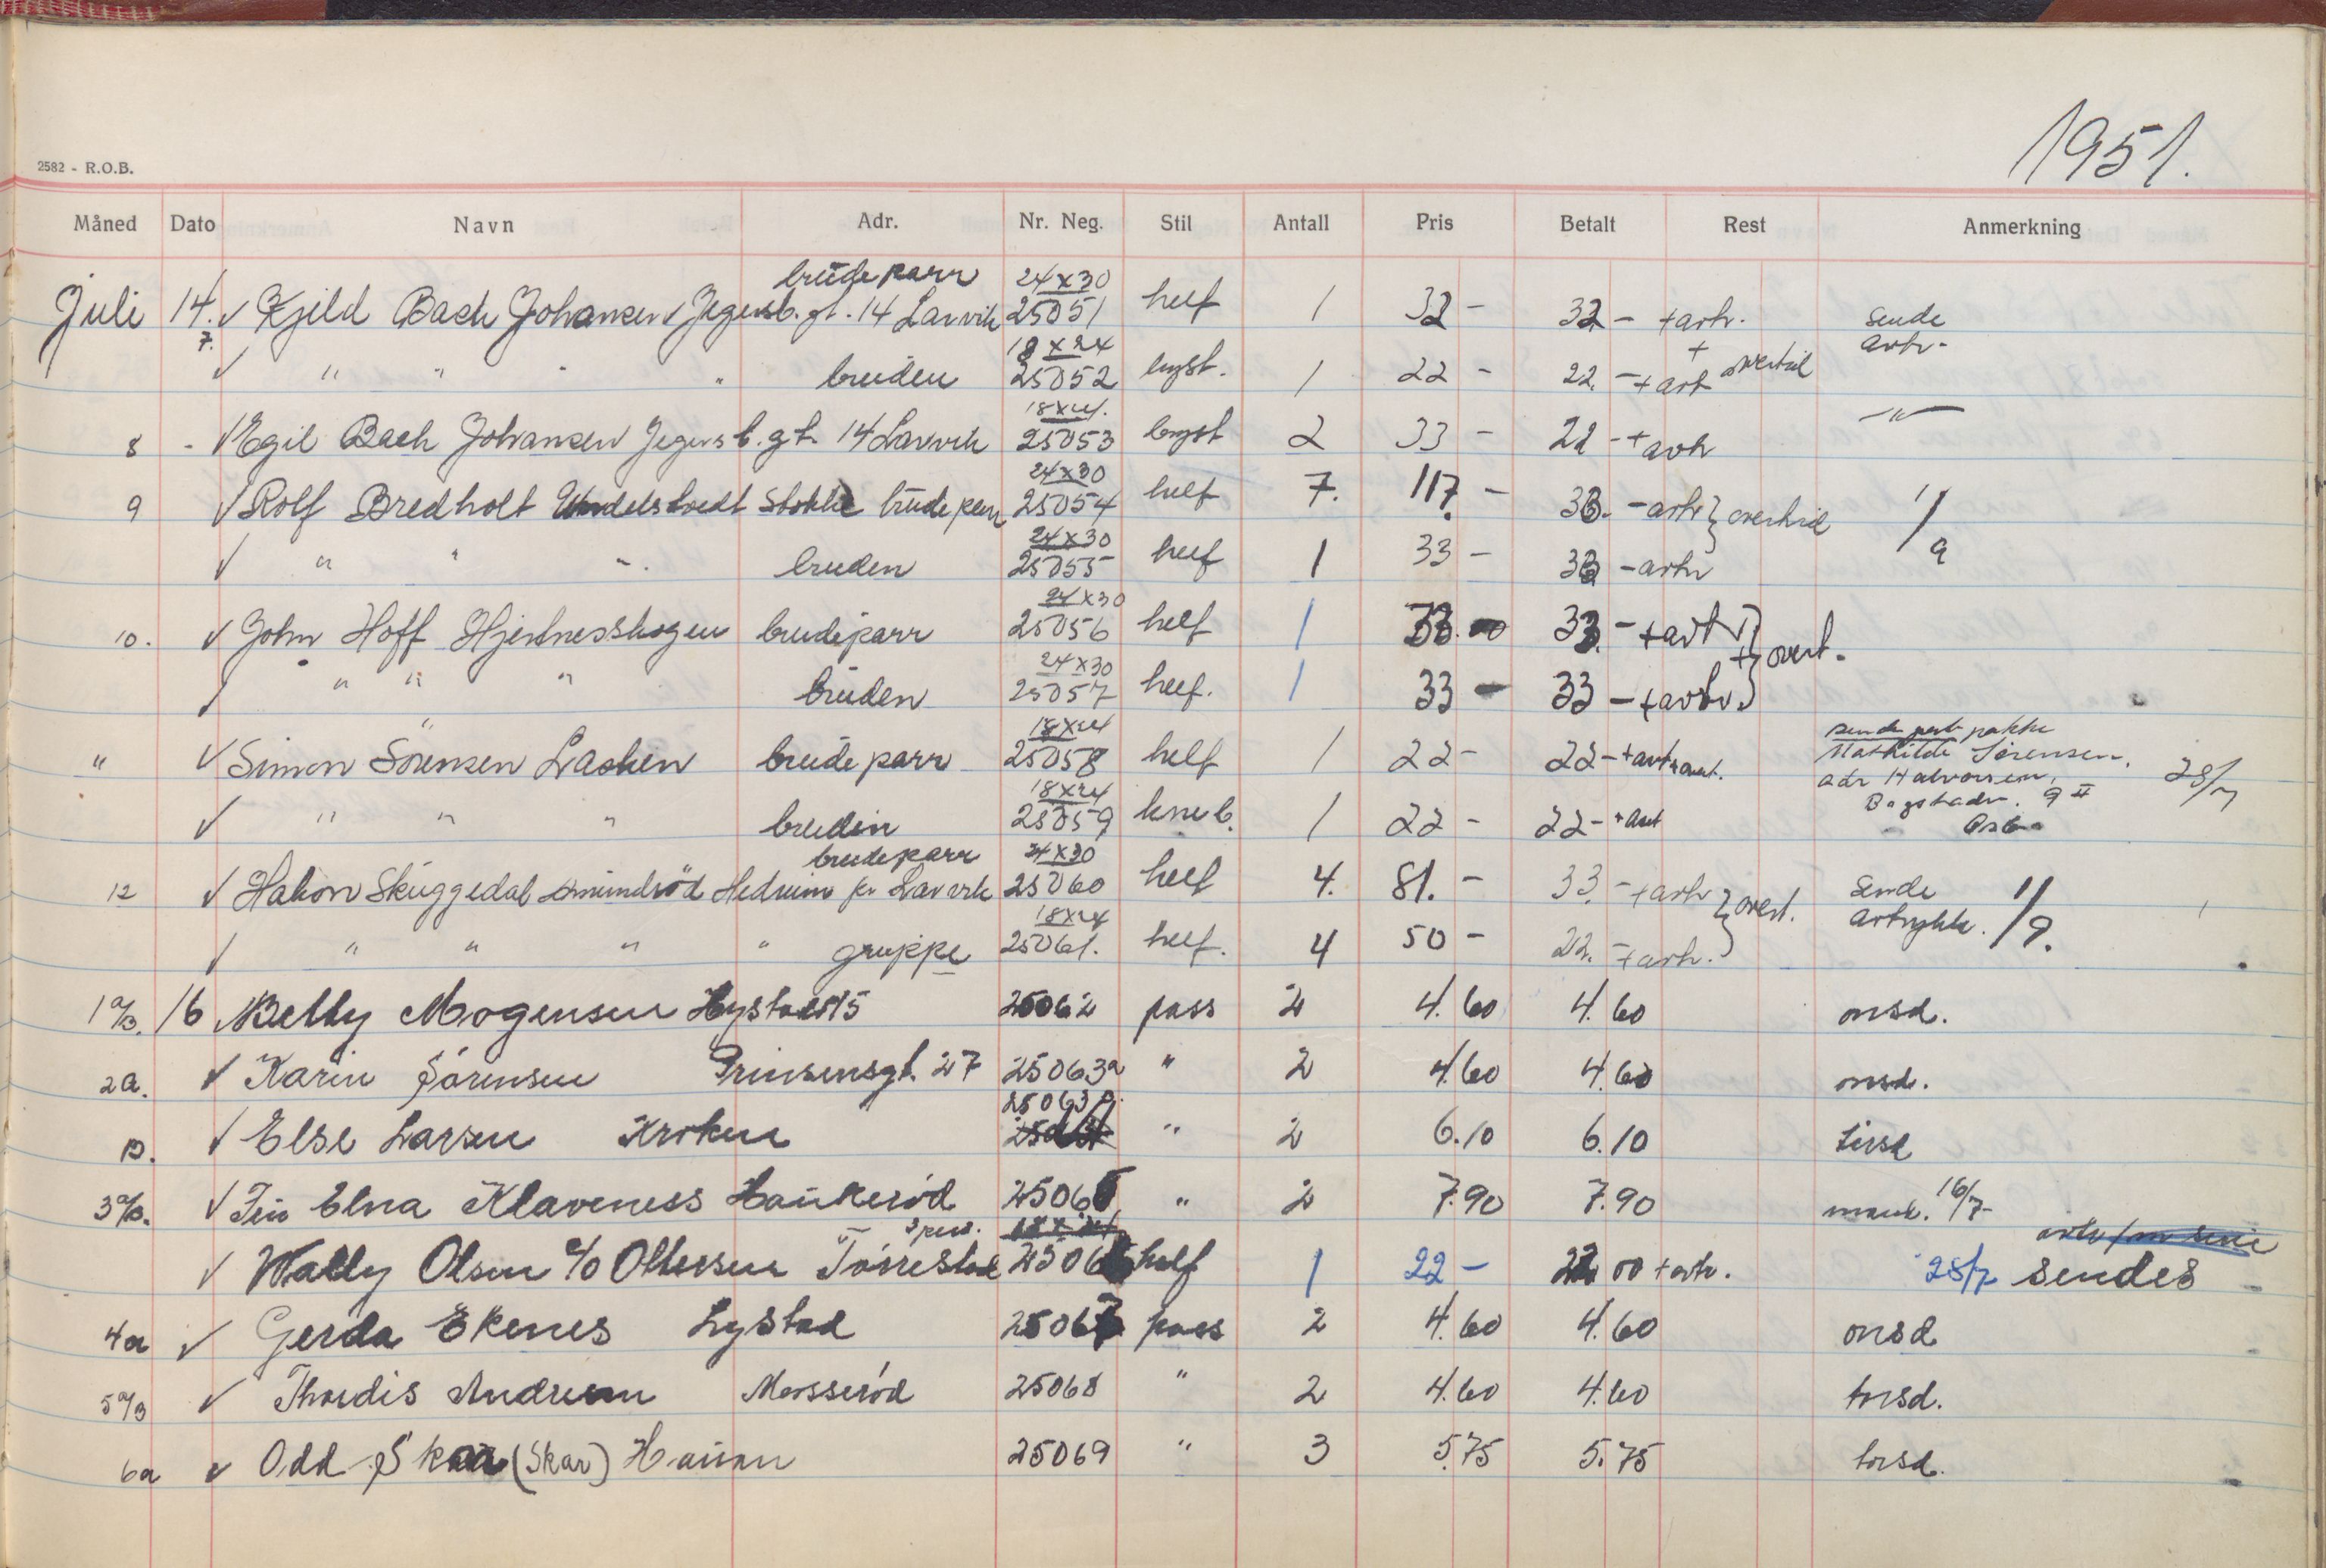 1951.
2582 - R.O.B.
Måned Dato Navn Adr. Nr. Neg. Stil Antall Pris Betalt Rest Anmerkning
brudeparr 24x30
Juli 14. Kjeld Bach Johansen Jegersb. gt. 14 Larvik 25051 helf 1 32 - 32 - + avtr. sende avtr.
7. 18x24
" " " " bruden 25052 byst. 1 22 - 22. - + avt
18x24.
8 - Egil Bach Johansen Jegersb. gt. 14 Larvik 25053 byst 2 33 - 22 - + avtr "
24x30
9 Rolf Bredholt Stokke brudeparr 25054 helf 7. 117 - 33. - avtr 1/9
24x30
" " " bruden 25055 helf 1 33 - 33 - avtr
24x30
10. John Hoff Hjertnesskogen brudeparr 25056 helf 1 33. 33. - + avt
24x30
" " " bruden 25057 helf. 1 33 - 33 - + avtr. overt.
18x24
" Simon Sörensen Lasken brudeparr 25058 helf 1 22 - 22 - + avtr sende post pakke
Mathilde Sörensen.
adr Halvorsen, 28/7
18x24
" " " bruden 25059 kneb. 1 22 - 22 - + avt 9 II
Oslo
brudeparr 24x30
12 Hakon Skuggedal Hedrum pr Larvik 25060 helf 4. 81. - 33. - + avtr overt. Sende avtrykk. 1/9.
18x24
" " " " gruppe 25061. helf. 4 50 - 22. - + avtr.
1 a/b. 16 Betty Mogensen Hystadv 15 25062 pass 2 4.60 4.60 onsd.
2a. Karin Sörensen Prinsensgt. 27 25063a " 2 4.60 4.60 onsd.
25063 b.
b. Else Larsen Kroken " 2 6.10 6.10 tirsd
3 a/b. Elna Klaveness Haukeröd 25065 " 2 7.90 7.90 16/7
3 pers. 18x24
Wally Olsen c/o Ottersen Torrestad 25066 helf 1 22 - 22 00 + avtr. 25/7 sendes
4a Gerda Ekenes Lystad 25067 pass 2 4.60 4.60 onsd
5 a/b Thordis Andresen Mosseröd 25068 " 2 4.60 4.60 torsd.
6a Odd Skaa (Skar) Haugan 25069 " 3 5.75 5.75 torsd.